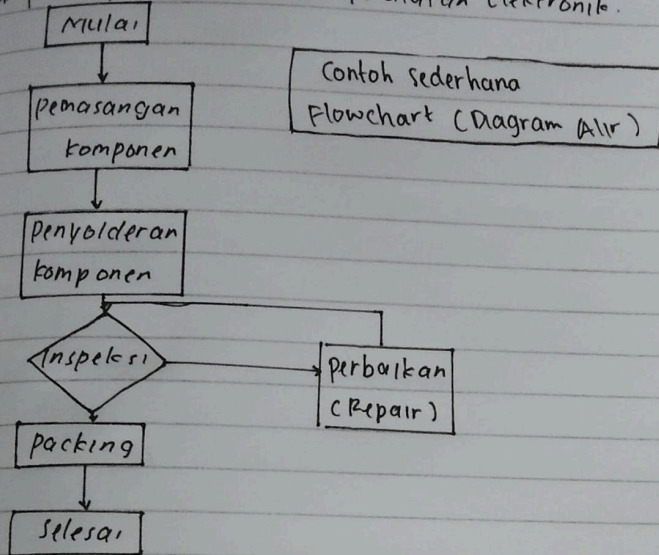 Elektronik.
Mulai
Contoh sederhana
Flowchart (Diagram Alir)
Pemasangan
komponen
Penyolderan
komponen
Inspeksi
Perbaikan
(Repair)
Packing
Selesai